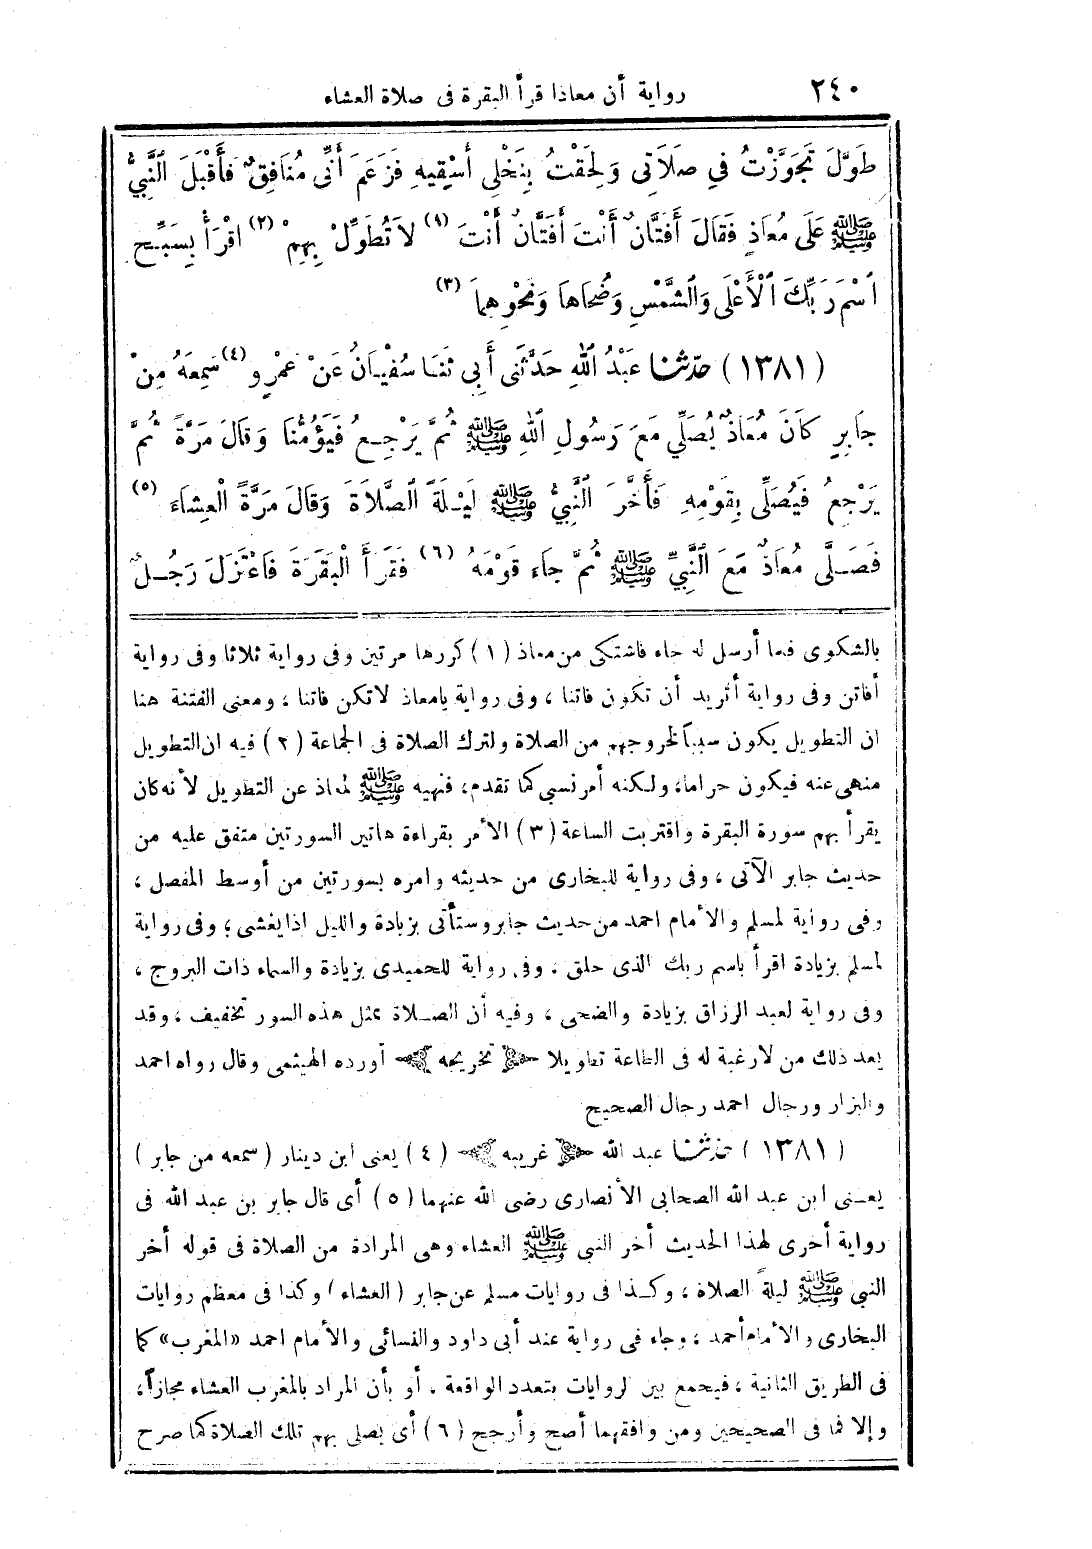 ٢٤٠ رواية أن معاذا قرأ البقرة فى صلاة العشاء
طَوَّلَ تَجَوَّزْتُ فِي صَلَاتِى وَلَحِقْتُ بِنَخْلِى أَسْقِيهِ فَزَعَمَ أَنِّى مُنَافِقٌ فَأَقْبَلَ النَّبِيُّ
ﷺ عَلَى مُعَاذٍ فَقَالَ أَفَتَّانٌ أَنْتَ أَفَتَّانٌ أَنْتَ (١) لَا تُطَوِّلْ بِهِمْ (٢) اقْرَأْ بِسَبِّحِ
اسْمَ رَبِّكَ الْأَعْلَى وَالشَّمْسِ وَضُحَاهَا وَنَحْوِهِمَا (٣)
(١٣٨١) حدّثنا عَبْدُ اللهِ حَدَّثَنِى أَبِي ثَنَا سُفْيَانُ عَنْ عَمْرٍو (٤) سَمِعَهُ مِنْ
جَابِرٍ كَانَ مُعَاذٌ يُصَلِّي مَعَ رَسُولِ اللهِ ﷺ ثُمَّ يَرْجِعُ فَيَؤُمُّنَا وَقَالَ مَرَّةً ثُمَّ
يَرْجِعُ فَيُصَلِّى بِقَوْمِهِ فَأَخَّرَ النَّبِيُّ ﷺ لَيْلَةً الصَّلَاةَ وَقَالَ مَرَّةً الْعِشَاءَ (٥)
فَصَلَّى مُعَاذٌ مَعَ النَّبِيِّ ﷺ ثُمَّ جَاءَ قَوْمَهُ (٦) فَقَرَأَ الْبَقَرَةَ فَاعْتَزَلَ رَجُلٌ
بالشكوى فلما أرسل له جاء فاشتكى من معاذ (١) كررها مرتين وفى رواية ثلاثا وفى رواية
أفاتن وفى رواية أتريد أن تكون فاتنا ، وفى رواية يامعاذ لاتكن فاتنا ، ومعنى الفتنة هنا
ان التطويل يكون سبباً لخروجهم من الصلاة ولترك الصلاة فى الجماعة (٢) فيه ان التطويل
منهى عنه فيكون حراما، ولكنه أمر نسبى كما تقدم، فنهيه ﷺ لمعاذ عن التطويل لأنه كان
يقرأ بهم سورة البقرة واقتربت الساعة (٣) الأمر بقراءة هاتين السورتين متفق عليه من
حديث جابر الآتى ، وفى رواية للبخارى من حديثه وامره بسورتين من أوسط المفصل ،
وفى رواية لمسلم والأمام احمد من حديث جابر وستأتى بزيادة والليل اذا يغشى ؛ وفى رواية
لمسلم بزيادة اقرأ باسم ربك الذى خلق ، وفى رواية للحميدى بزيادة والسماء ذات البروج ،
وفى رواية لعبد الرزاق بزيادة والضحى ، وفيه أن الصلاة بمثل هذه السور تخفيف ، وقد
يعد ذلك من لا رغبة له فى الطاعة تطويلا ﴿تخريجه﴾ أورده الهيثمى وقال رواه احمد
والبزار ورجال احمد رجال الصحيح
(١٣٨١) حدّثنا عبد الله ﴿غريبه﴾ (٤) يعنى ابن دينار (سمعه من جابر)
يعنى ابن عبد الله الصحابى الأنصارى رضى الله عنهما (٥) أى قال جابر بن عبد الله فى
رواية أخرى لهذا الحديث أخر النبى ﷺ العشاء وهى المرادة من الصلاة فى قوله أخر
النبى ﷺ ليلةً الصلاة ، وكذا فى روايات مسلم عن جابر (العشاء) وكذا فى معظم روايات
البخارى والأمام أحمد ، وجاء فى رواية عند أبى داود والنسائى والأمام احمد «المغرب» كما
فى الطريق الثانية ، فيجمع بين الروايات بتعدد الواقعة . أو بأن المراد بالمغرب العشاء مجازاً،
وإلا فما فى الصحيحين ومن وافقهما أصح وأرجح (٦) أى يصلى بهم تلك الصلاة كما صرح